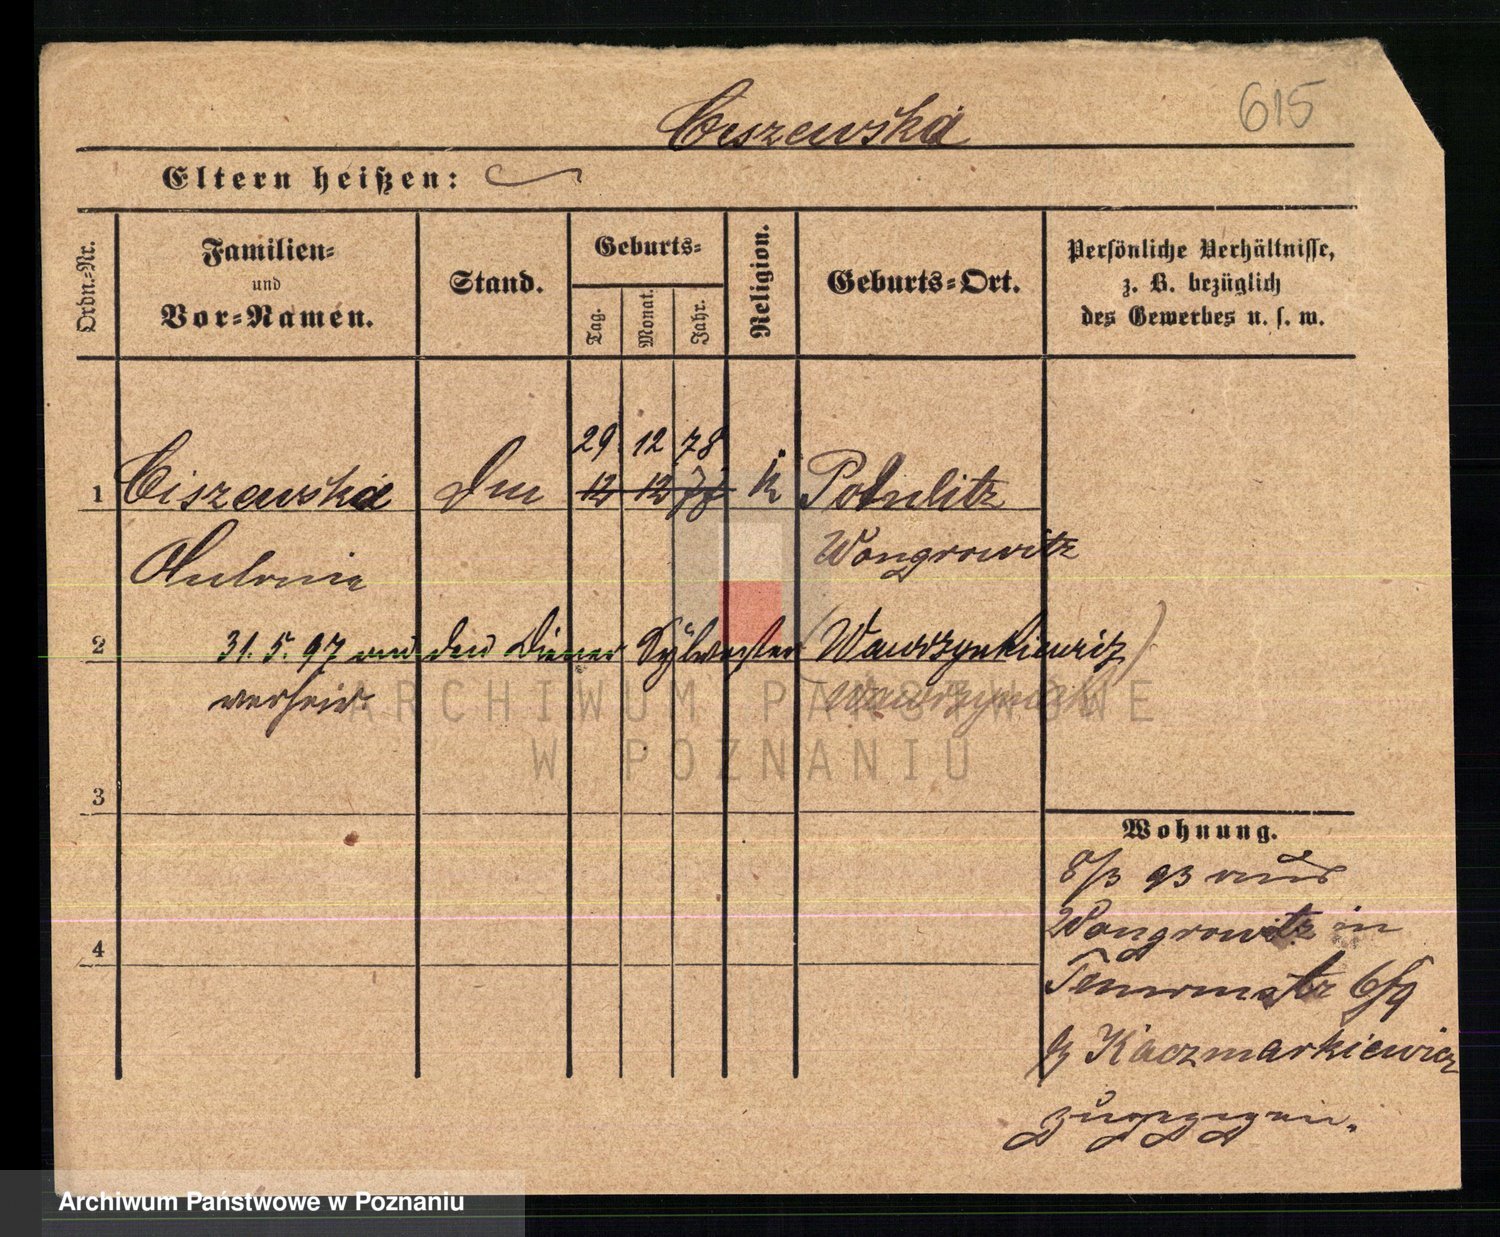 Ciszewska 615
Eltern heißen:
Ordn.-Nr.
Familien-
und
Vor-Namen.
Stand.
Geburts-
Tag.
Monat.
Jahr.
Religion.
Geburts-Ort.
Persönliche Verhältnisse,
z. B. bezüglich
des Gewerbes u. s. w.
29. 12 78
1 Ciszewska 12 12 77 k Potulitz
Antonie Wongrowitz
2 31. 5. 97 den Diener Sylvester (Wawrzynkiewicz)
verheir.
ARCHIWUM PAŃSTWOWE
W POZNANIU
3
Wohnung.
8/3 93 aus
Wongrowitz in
4
6/9
b Kaczmarkiewicz
zugezogen.
Archiwum Państwowe w Poznaniu